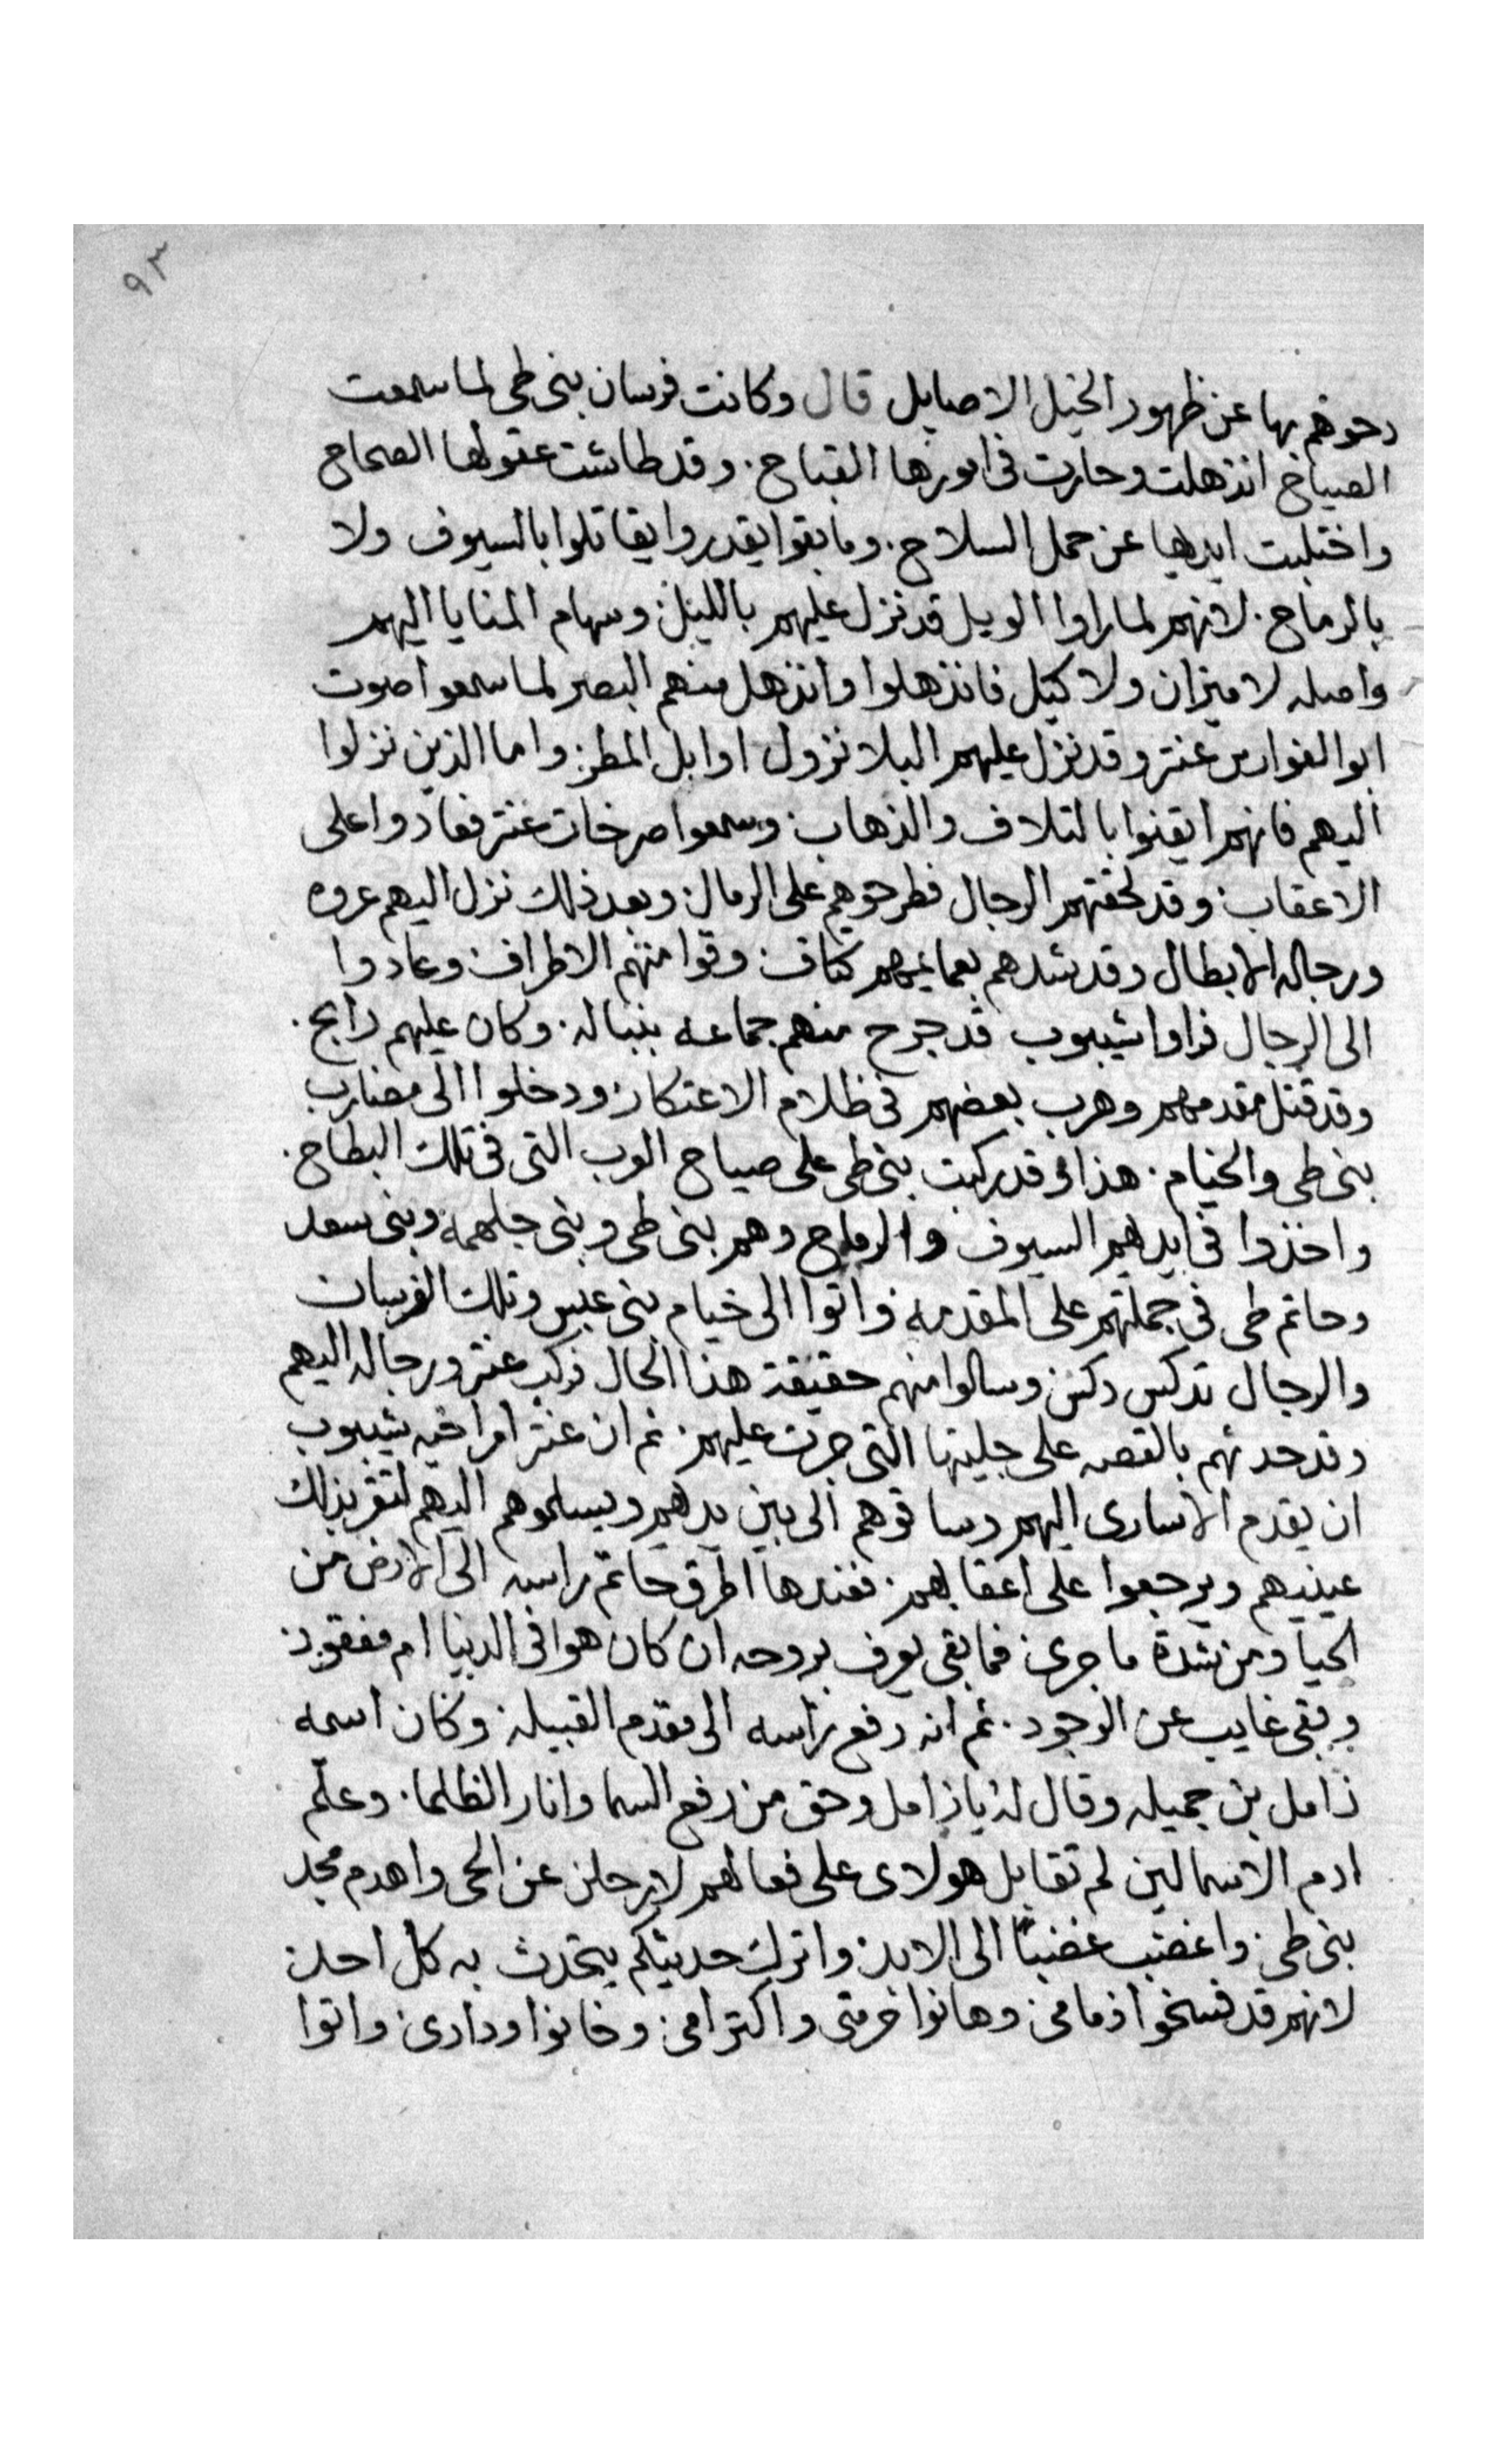 ٩٣
دحوهم بها عن ظهور الخيل الاصايل قال وكانت فرسان بنى طى لما سمعت
الصياح انذهلت وحارت فى امورها القباح. وقد طاشت عقولها الصحاح
واختبلت ايديها عن حمل السلاح. وما بقوا يقدروا يقاتلوا بالسيوف ولا
بالرماح. لانهم لما راوا الويل قد نزل عليهم بالليل. وسهام المنايا اليهم
واصله لا ميزان ولا كيل فانذهلوا وانذهل منهم البصر لما سمعوا صوت
ابوا الفوارس عنتر وقد نزل عليهم البلا نزول اوابل المطر. واما الذين نزلوا
اليهم فانهم ايقنوا بالتلاف والذهاب. وسمعوا صرخات عنتر فعادوا على
الاعقاب. وقد لحقتهم الرجال فطرحوهم على الرمال. وبعد ذلك نزل اليهم عروه
ورجاله الابطال وقد شدهم بعمايمهم كتاف. وقوا منهم الاطراف. وعادوا
الى الرجال فراوا شيبوب قد جرح منهم جماعه بنباله. وكان عليهم رابح.
وقد قتل مقدمهم وهرب بعضهم فى ظلام الاعتكار. ودخلوا الى مضارب
بنى طى والخيام. هذا وقد ركبت بنى طى على صياح العرب التى فى تلك البطاح.
واخذوا فى ايديهم السيوف والرماح وهم بنى طى وبنى جلهمه وبنى سعد
وحاتم طى فى جملتهم على المقدمه واتوا الى خيام بنى عبس وتلك الفرسان
والرجال تدكس دكس وسالوا منهم حقيقة هذا الحال فركب عنتر ورجاله اليهم
وقد حدثهم بالقصه على جليتها التى جرت عليهم. ثم ان عنتر امر اخيه شيبوب
ان يقدم الاسارى اليهم وساقوهم الى بين يديهم ويسلموهم اليهم لتقر بذلك
عينيهم ويرجعوا على اعقابهم. فعندها اطرق حاتم راسه الى الارض من
الحيا ومن شدة ما جرى. فما بقى يعرف بروحه ان كان هوا فى الدنيا ام مفقود.
وبقى غايب عن الوجود. ثم انه رفع راسه الى مقدم القبيله وكان اسمه
زامل بن جميله وقال له يا زامل وحق من رفع السما وانار الظلما. وعلم
ادم الاسما لين لم تقابل هولاى على فعالهم لارحلن عن الحى واهدم مجد
بنى طى. واغضب غضبًا الى الابد. واترك حديثكم يتحدث به كل احد.
لانهم قد فسخوا ذمامى. وهانوا حرمتى واكترامى. وخانوا ودادى. واتوا